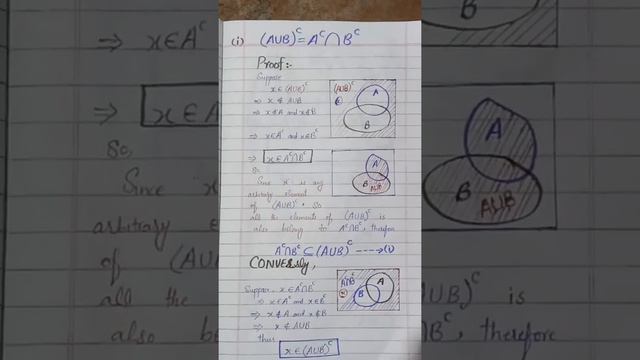 (i) (AUB)ᶜ = Aᶜ∩Bᶜ
Proof:-
Suppose
x∈(AUB)ᶜ
⇒ x∉AUB
⇒ x∉A and x∉B
⇒ x∈Aᶜ and x∈Bᶜ
⇒ x∈Aᶜ∩Bᶜ
(AUB)ᶜ
A
B
So
Since x is any
arbitrary element
of (AUB)ᶜ. So
A
B
AUB
all the elements of (AUB)ᶜ is
also belong to Aᶜ∩Bᶜ, therefore
Aᶜ∩Bᶜ ⊆ (AUB)ᶜ ----→(1)
CONVERSLY,
Suppose x∈Aᶜ∩Bᶜ
⇒ x∈Aᶜ and x∈Bᶜ
⇒ x∉A and x∉B
⇒ x∉AUB
thus
x∈(AUB)ᶜ
Aᶜ∩Bᶜ
A
B
⇒ x∈Aᶜ
⇒ x∈A
So,
Since x
arbitrary e
of (AU
all the
also be
A
B
AUB
UB)ᶜ is
Bᶜ, therefore